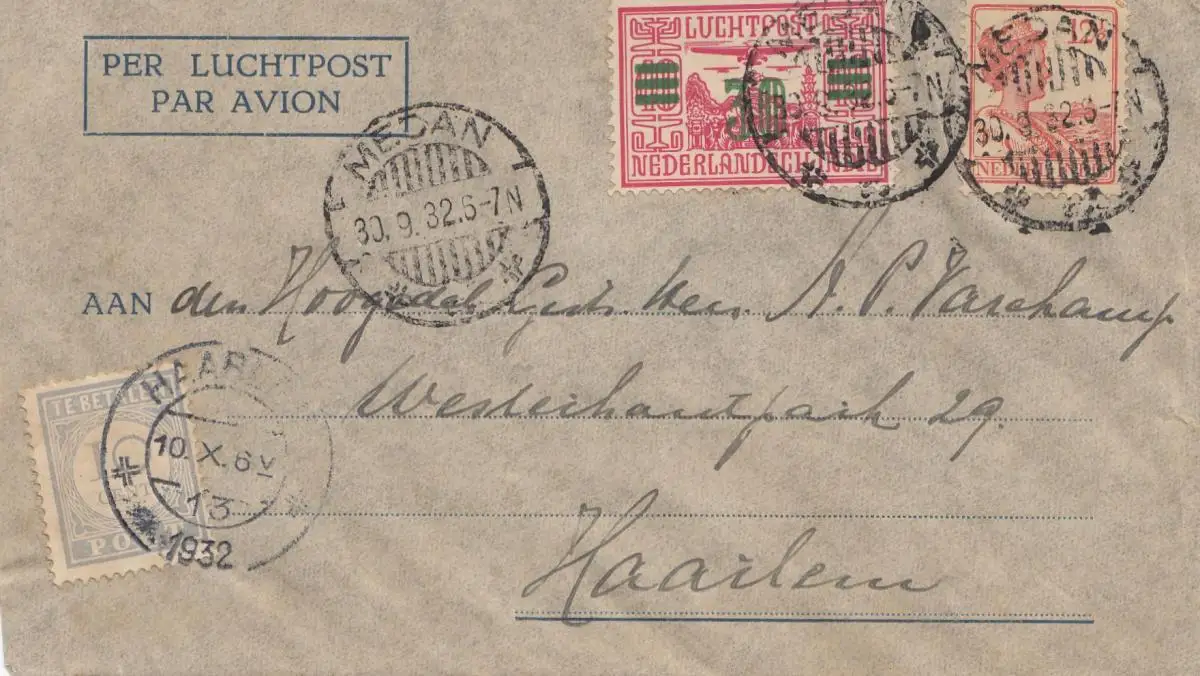 PER LUCHTPOST
PAR AVION
LUCHTPOST
30
NEDERLANDSCH INDIË
12½
NED
MEDAN
30.9.32.6-7N
MEDAN
30.9.32.6-7N
MEDAN
30.9.32.6-7N
AAN den Hoogedel Gestr. Heer A. P. Varkhamp
Westerhoutpark 29.
Haarlem
TE BETALEN
10
PORT
HAARLEM
10.X.6V
13
1932